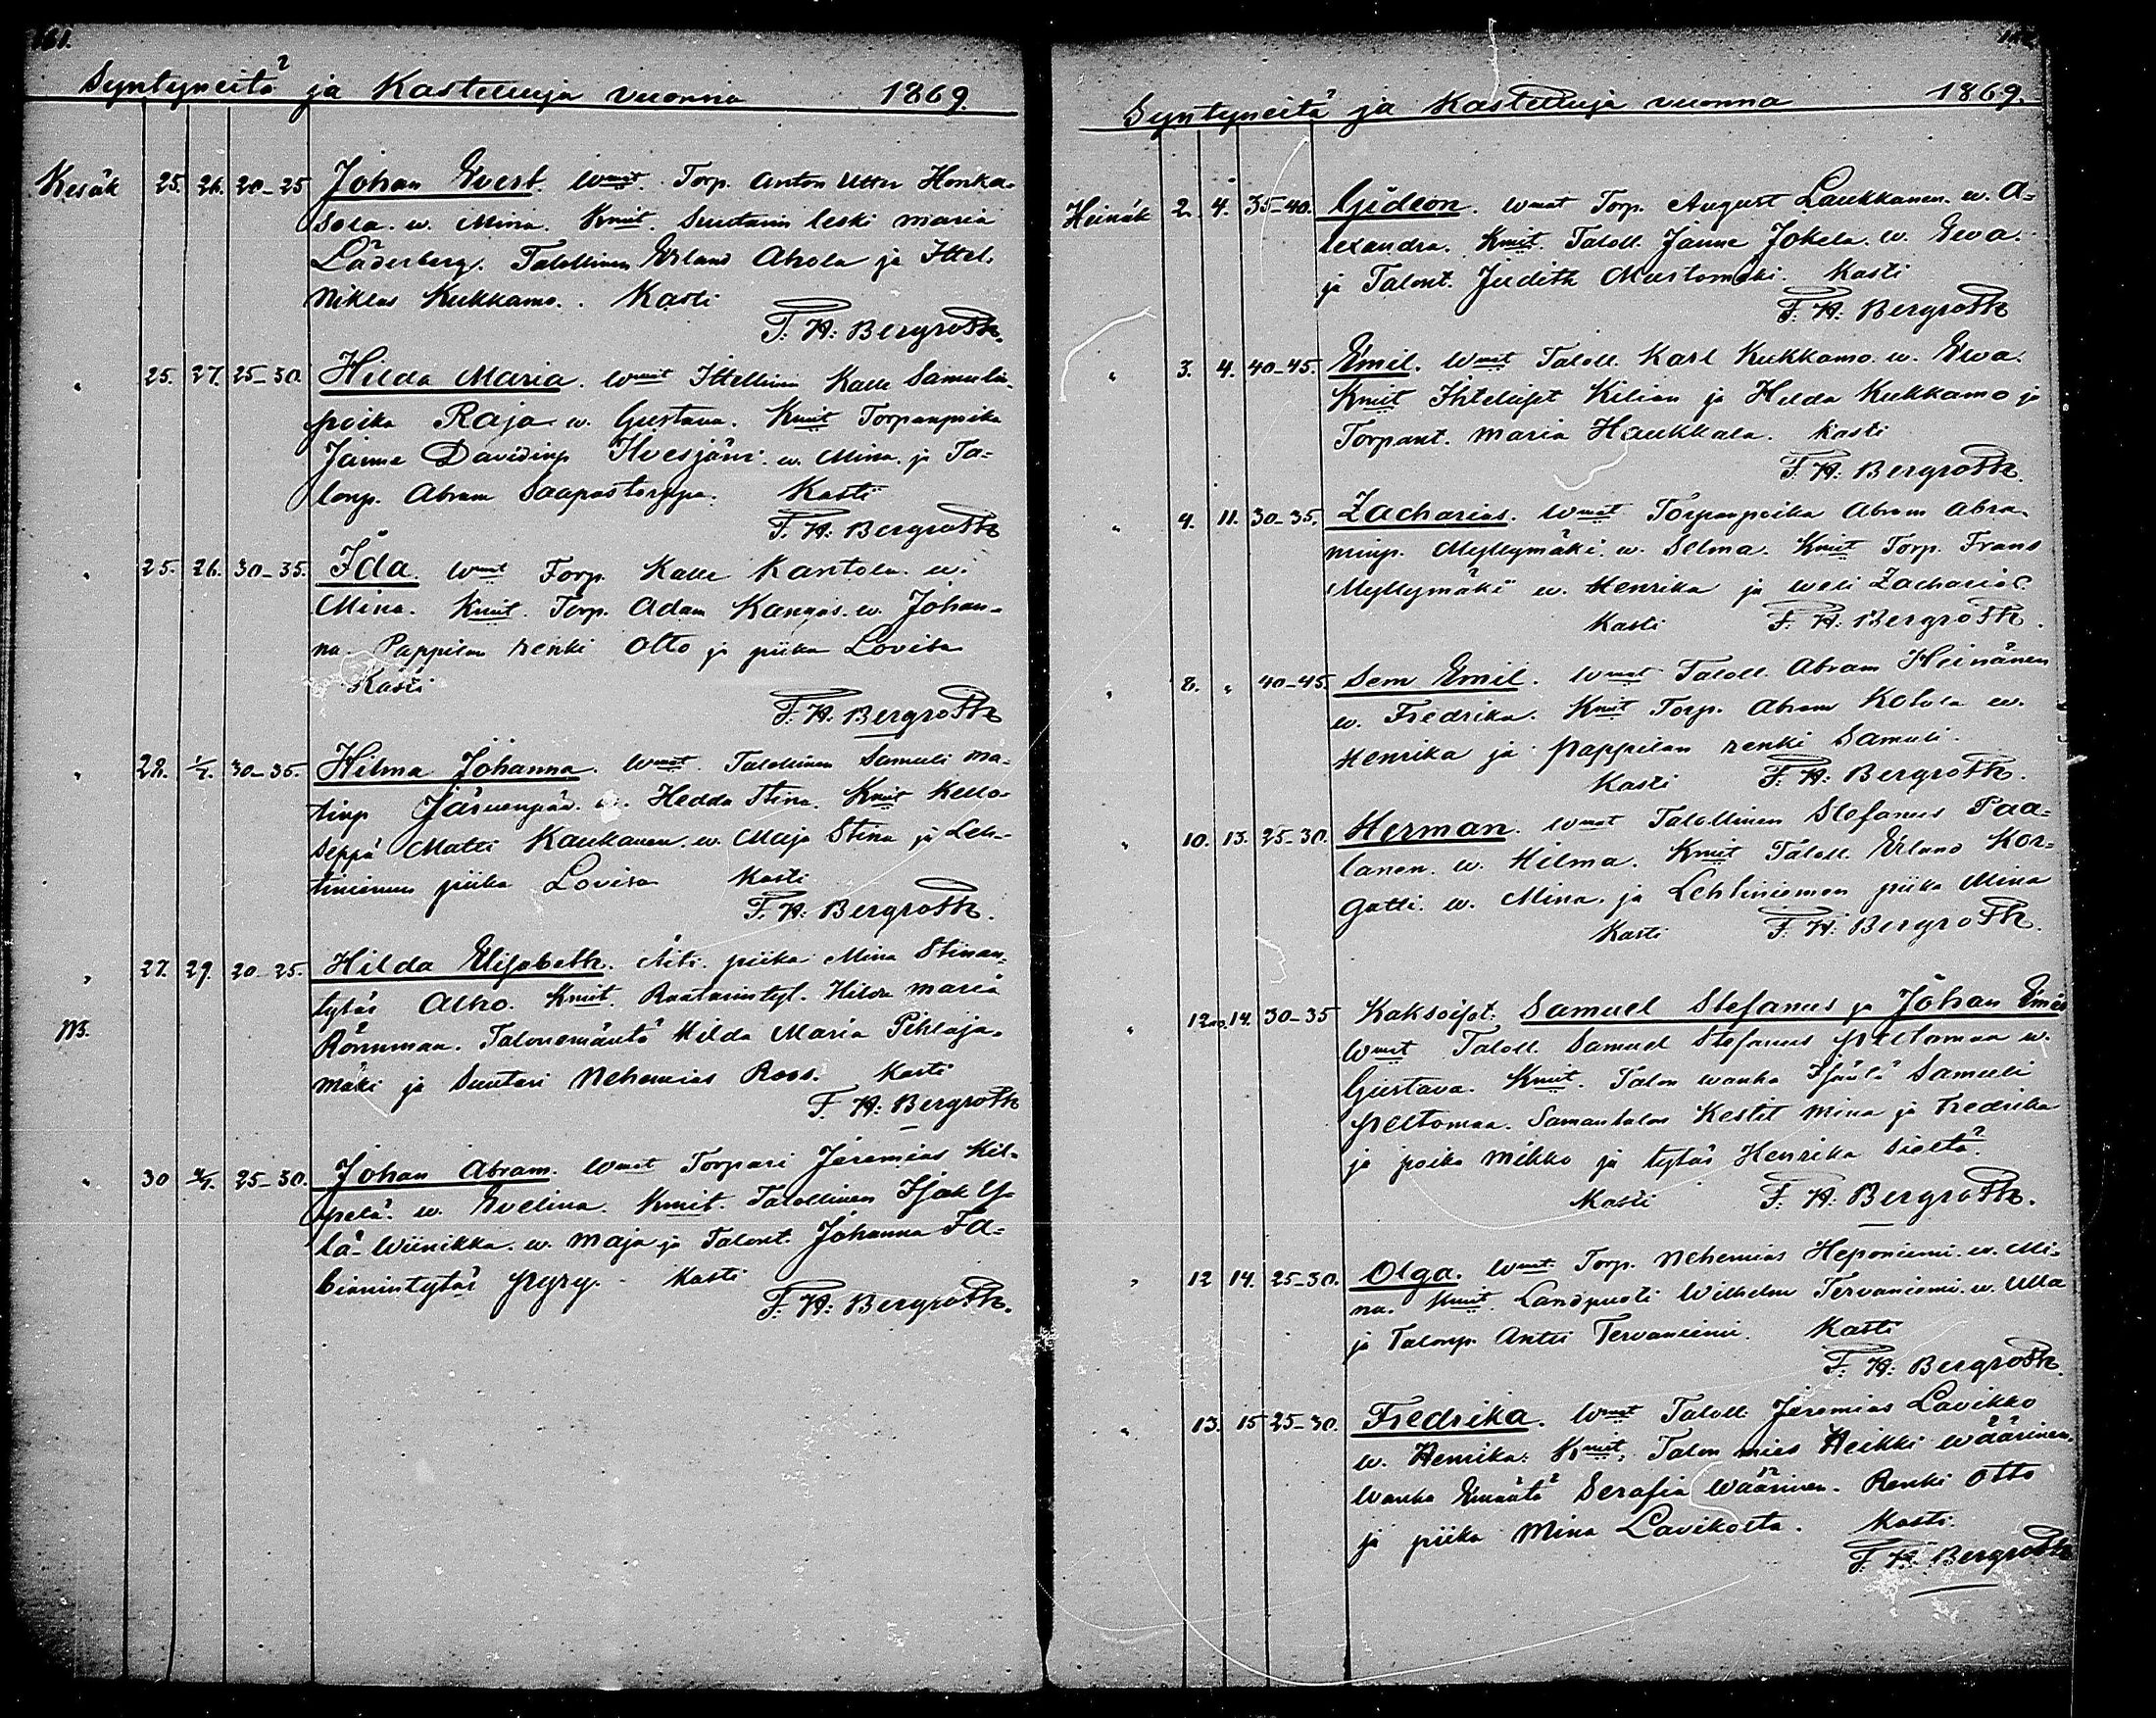 161.
Syntyneitä ja Kastettuja vuonna 1869.
Kesäk 25. 26. 20-25 Johan Evert. Wmat. Torp. Anton Utter Honka-
sola. w. Mina. Kmit. Suutarin leski Maria
Läderberg. Talollinen Erland Ahola ja Ittel.
Niklas Kukkamo. Kasti
F. H: Bergroth.
" 25. 27. 25-30. Hilda Maria. Wmat Ittellinen Kalle Samulin-
poika Raja w. Gustava. Kmit Torpanpoika
Janne Davidinp Ilvesjärvi. w. Mina. ja Ta-
lonp. Abram Saapastorppa. Kasti
F. H: Bergroth
" 25. 26. 30-35. Ida. Wmat Torp. Kalle Kantola. w.
Mina. Kmit. Torp. Adam Kangas. w. Johan-
na. Pappilan renki Otto ja piika Lovisa
Kasti
F. H: Bergroth
" 28. 1/7. 30-35. Hilma Johanna. Wmat. Talollinen Samuli Ma-
tinp Järvenpää. w. Hedda Stina. Kmit Kello-
seppä Matti Kaukanen. w. Maja Stina ja Leh-
tiniemen piika Lovisa Kasti
F. H: Bergroth.
" 27. 29. 20-25. Hilda Elisabeth. Äiti. piika Mina Stinan-
tytär Alho. Kmit. Raatarintyt. Hilda Maria
Rönnman. Talonemäntä Hilda Maria Pihlaja-
mäki ja Suutari Nehemias Roos. Kasti
F. H: Bergroth
" 30 4/7. 25-30. Johan Abram. Wmat Torpari Jeremias Kil-
pelä. w. Evelina. Kmit. Talollinen Isak Y-
lä-Wiinikka. w. Maja ja Talont. Johanna Fa-
bianintytär Pyry. Kasti
F. H: Bergroth.
Syntyneitä ja Kastettuja vuonna 1869.
Heinäk 2. 4. 35-40. Gideon. Wmat Torp. August Laukkanen. w. A-
lexandra. Kmit. Taloll. Janne Jokela. w. Eeva.
ja Talont. Judith Martomäki. Kasti
F. H: Bergroth
" 3. 4. 40-45. Emil. Wmat Taloll. Karl Kukkamo. w. Ewa.
Kmit Ihtelliset Kilian ja Hilda Kukkamo ja
Torpant. Maria Haukkala. Kasti
F. H: Bergroth.
" 4. 11. 30-35. Zacharias. Wmat Torpanpoika Abram Abra-
minp. Myllymäki. w. Selma. Kmit Torp. Frans
Myllymäki w. Henrika ja weli Zacharias.
Kasti F. H: Bergroth.
" 8. " 40-45. Sem Emil. Wmat Taloll. Abram Heinänen
w. Fredrika. Kmit Torp. Abram Kotola w.
Henrika ja Pappilan renki Samuli.
Kasti F. H: Bergroth.
" 10. 13. 25-30. Herman. Wmat Talollinen Stefanus Paa-
lanen. w. Hilma. Kmit Taloll. Erland Kor-
gatti. w. Mina. ja Lehtiniemen piika Mina
Kasti F. H: Bergroth.
" 12 14. 30-35 Kaksoiset. Samuel Stefanus ja Johan Emil
Wmat Taloll. Samuel Stefanus Peltomaa w.
Gustava. Kmit. Talon wanha Isäntä Samuli
Peltomaa. Samantalon Mina ja Fredrika
ja poika Mikko ja tytär Henrika sieltä.
Kasti F. H: Bergroth.
" 12 14. 25-30. Olga. Wmat. Torp. Nehemias Heponiemi. w. Mi-
na. Kmit. Wilhelm Tervaniemi. w. Ulla
ja Talonp. Antti Tervaniemi. Kasti
F. H: Bergroth.
" 13. 15 25-30. Fredrika. Wmat Taloll. Jeremias Lavikko
w. Henrika. Kmit, Talon mies Heikki Wäärinen.
Wanha Emäntä Serafia Wäärinen. Renki Otto
ja piika Mina Lavikolta. Kasti.
F. H. Bergroth